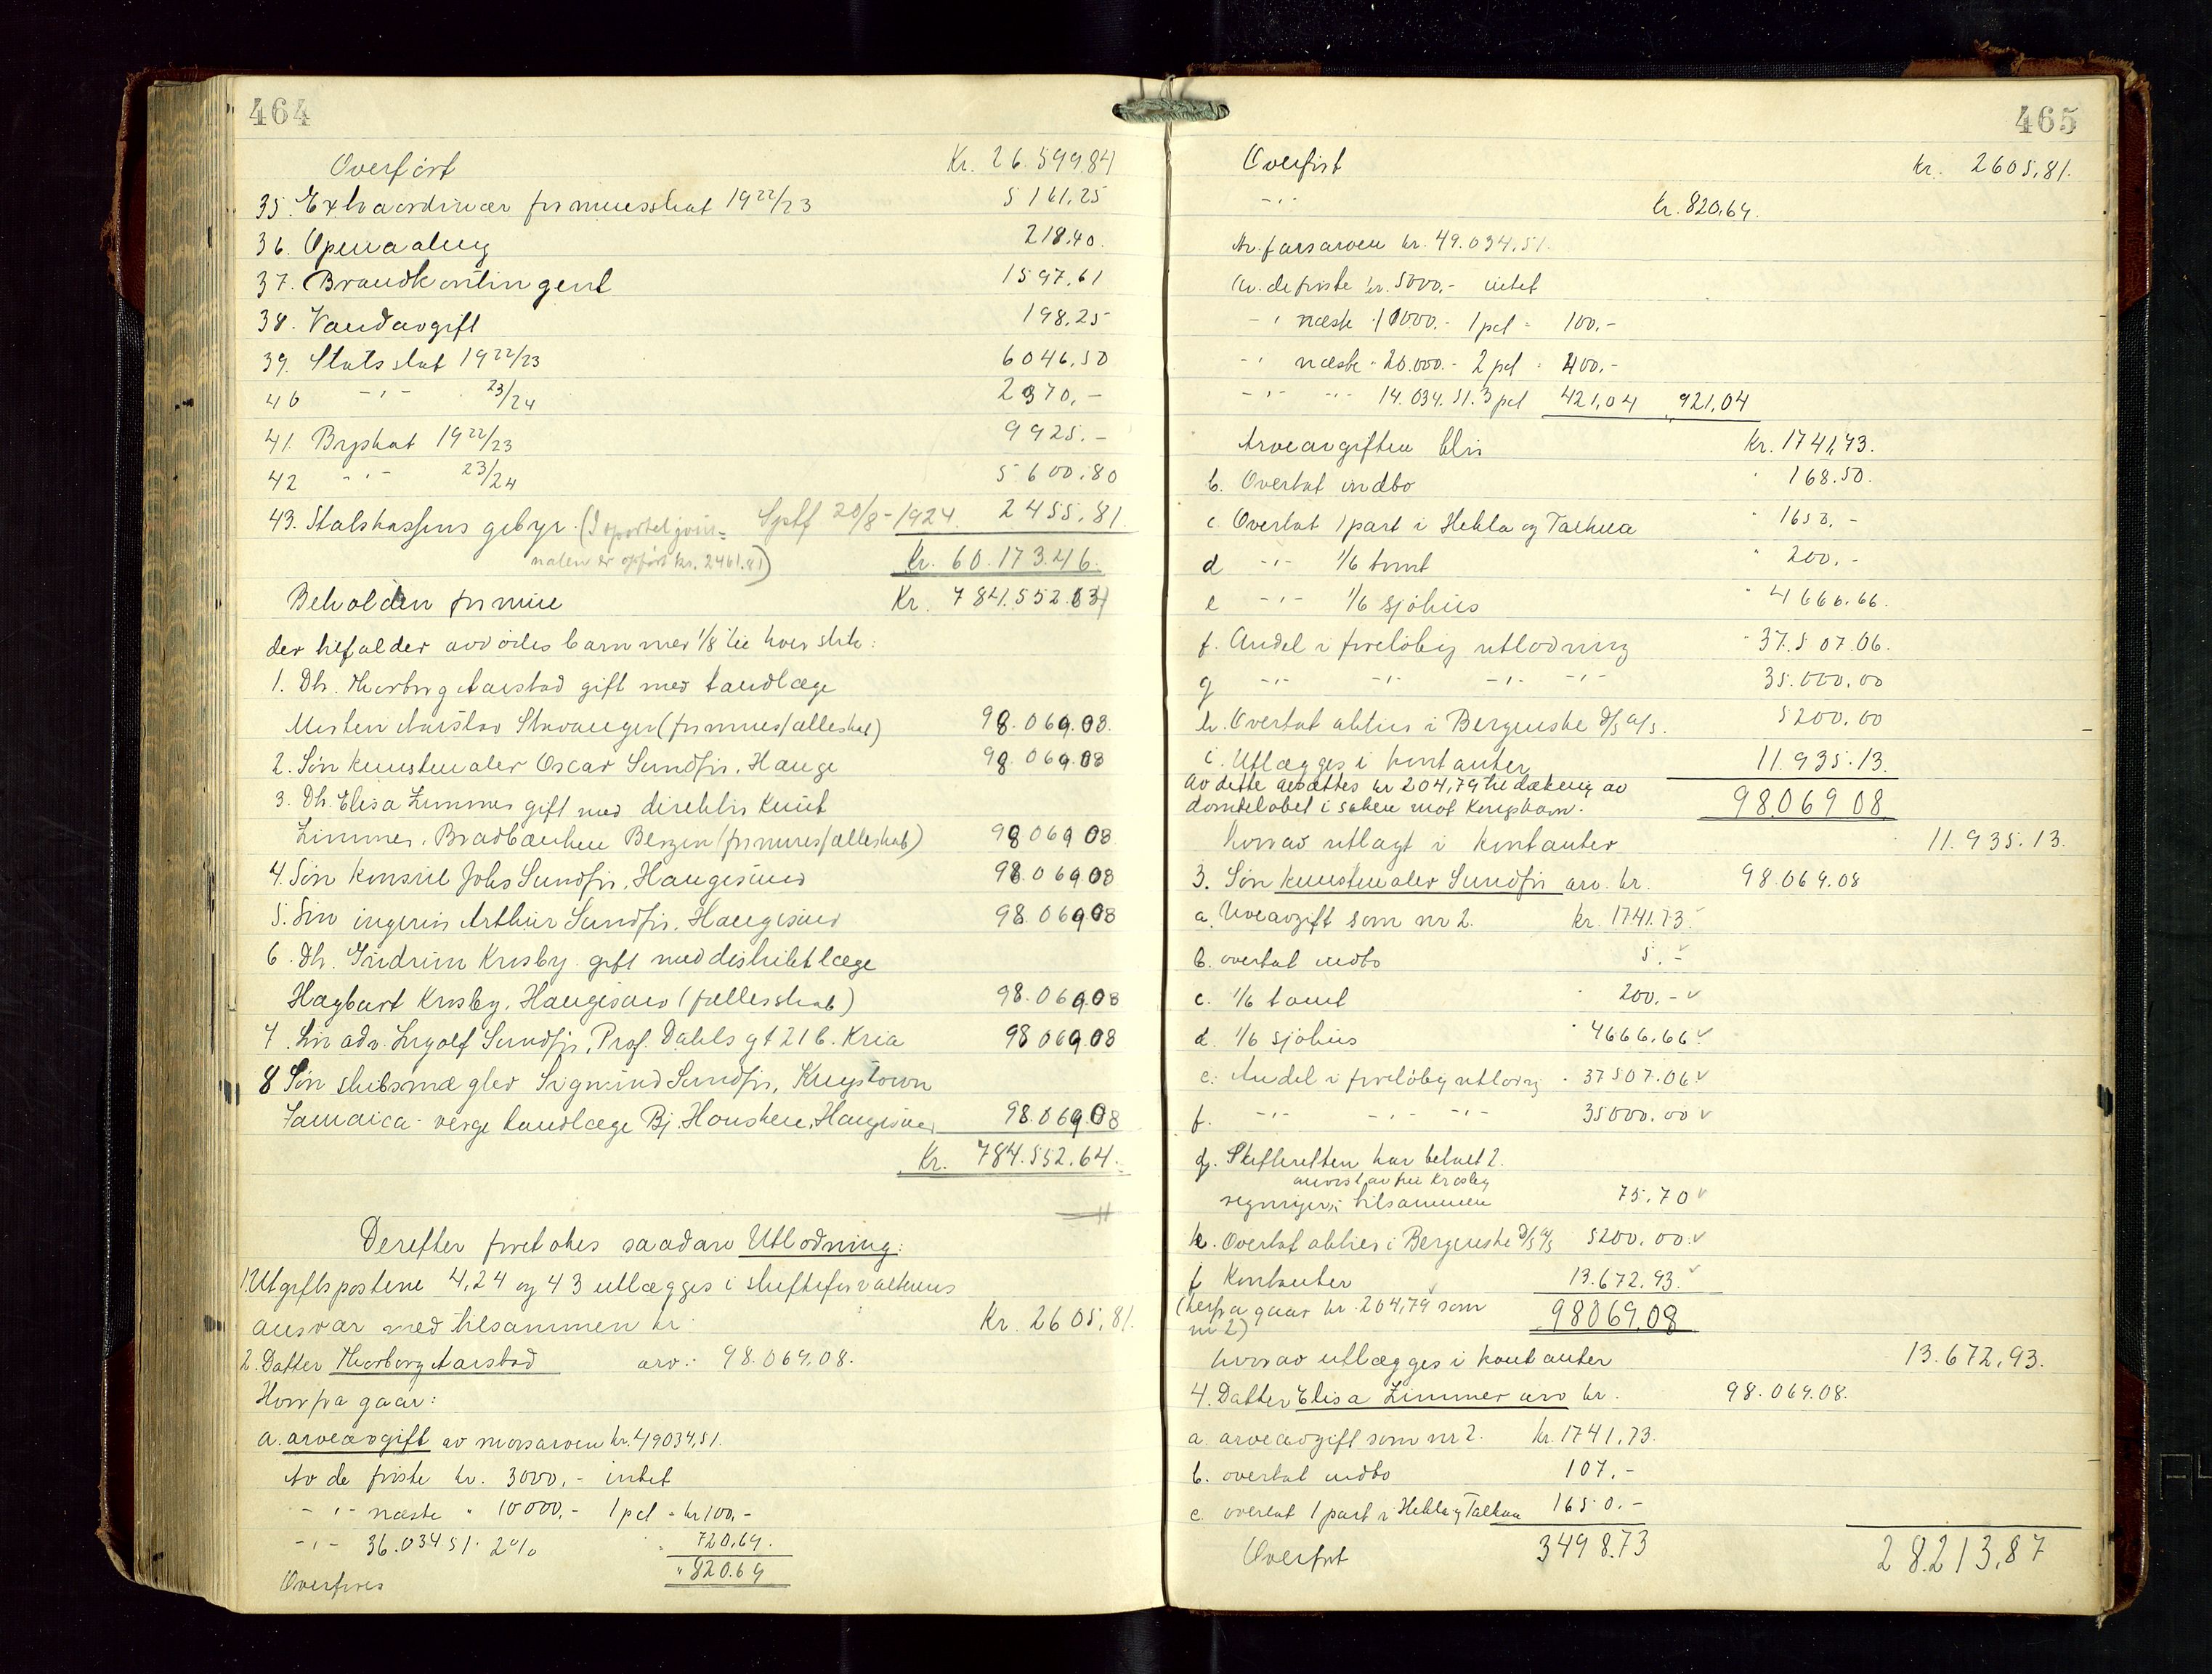 464
Overført Kr. 26.599.84
35. Extraordinær formuesskat 1922/23 5161,25
36. Opmaaling 218,40.
37. Brandkontingent 1597,61
38. Vandavgift 198,25
39. Statsskat 1922/23 6046,50
40 -"- 23/24 2370,-
41. Byskat 1922/23 9925.-
42 -"- 23/24 5600,80
43. Statskassens gebyr. (I sporteljour= Sptf 20/8-1924. 2455,81
nalen er opført kr. 2461.81)
Kr. 60.173.46.
Beholden formue Kr. 784.552.63
der tilfalder avdødes barn med 1/8 til hver stk:
1. Dtr. Thorborg Aarstad gift med tandlæge
Morten Aarstad Stavanger (formuesfælleskab) 98.069.08.
2. Søn kunstmaler Oscar Sundfør, Hauge 98.069.08
3. Dtr. Elisa Zimmer gift med direktør Knut
Zimmer, Bradbænken Bergen (formuesfælleskab) 98069 08
4. Søn konsul Johs Sundfør, Haugesund 98.069 08
5. Søn ingeniør Arthur Sundfør, Haugesund 98.069 08
6. Dtr. Gudrun Krosby gift med distriktlæge
Hagbart Krosby, Haugesund (fællesskab) 98.069.08
7. Søn adv. Ingolf Sundfør, Prof. Dahls gt 21 b. Kria 98 069.08
8 Søn skibsmægler Sigmund Sundfør, Kingstown
Jamaica - verge tandlæge Bj. Housken, Haugesund 98.069.08
Kr. 784.552.64.
Derefter foretokes saadan Utlodning:
1. Utgiftspostene 4,24 og 43 utlægges i skifteforvalterens
ansvar med tilsammen kr. Kr. 2605,81.
2. Datter Thorborg Aarstad arv.: 98.069.08.
Herfra gaar:
a. arveavgift av morsarven kr. 49034,51.
Av de første kr. 3000,- intet
-"- næste " 10000,- 1 pct = kr 100,-
-"- 36.034 51. 2% " 720,69.
Overføres " 820.69
465
Overført kr. 2605,81.
-"- kr. 820,69.
Av farsarven kr. 49.034,51.
Av de første kr. 5000,- intet
-" næste " 10000.- 1 pct = 100,-
-" næste " 20.000.- 2 pct = 400,-
-"- -"- 14.034.51.3 pct 421,04 921,04
Arveavgiften blir Kr. 1741,73.
b. Overtat indbo " 168.50.
c. Overtat 1 part i Hekla og Talhua " 1653,-
d -"- 1/6 tomt " 200.-
e -"- 1/6 sjøhus " 4666.66.
f. Andel i foreløbig utlodning " 37.507.06.
g -"- -"- -"- -"- 35.000,00
h. Overtat aktier i Bergenske D/S A/S. 5200.00
i. Utlægges i kontanter 11.935.13.
Av dette avsættes kr 204,79 til dækning av
domtelobet i saken mot Kingstown. 98069 08
hvorav utlagt i kontanter 11.935.13.
3. Søn kunstmaler Sundfør arv. kr. 98.069.08
a. Arveavgift som nr 2. kr. 1741.73
b. overtat indbo 5.-
c. 1/6 tomt " 200.-
d. 1/6 sjøhus " 4666,66
e. Andel i foreløbig utlodn " 37507.06
f. -"- -"- -"- 35000.00
g. Skifteretten har betalt 2.
anvist av fru Krosby
regninger, tilsammen 75,70
h. Overtat aktier i Bergenske D/S A/S 5200.00.
f Kontanter 13.672,93.
(herfra gaar kr. 204,79 som
nr 2) 98069,08
hvorav utlægges i kontanter 13.672,93.
4. Datter Elisa Zimmer arv kr. 98.069.08.
a. arveavgift som nr 2. kr. 1741,73.
b. overtat indbo 107.-
c. overtat 1 part i Hekla og Talhua 1650.-
Overført 3498.73 28.213,87